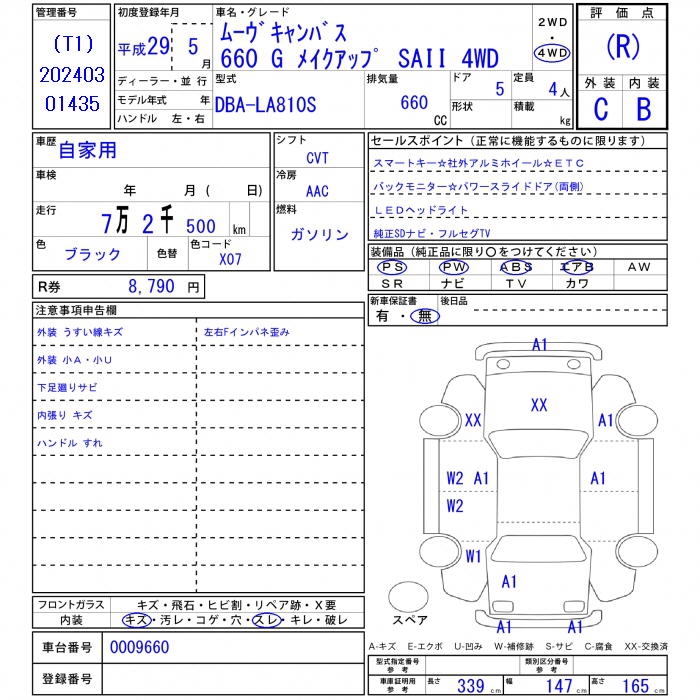 管理番号
(T1)
202403
01435
初度登録年月
平成29 5 月
ディーラー・並行
モデル年式 年
ハンドル 左・右
車名・グレード
ムーヴキャンバス
660 G メイクアップ SAII 4WD
2WD
・
4WD
型式
DBA-LA810S
排気量
660 CC
ドア 5
形状
定員 4人
積載 kg
評価点
(R)
外装 内装
C B
車歴
自家用
車検
年 月( 日)
走行
7万 2千 500 km
色
ブラック
色替
色コード
X07
シフト
CVT
冷房
AAC
燃料
ガソリン
R券 8,790 円
セールスポイント(正常に機能するものに限ります)
スマートキー☆社外アルミホイール☆ETC
バックモニター☆パワースライドドア(両側)
LEDヘッドライト
純正SDナビ・フルセグTV
装備品(純正品に限り〇をつけてください)
PS PW ABS エアB AW
SR ナビ TV カワ
新車保証書
有・無
後日品
注意事項申告欄
外装 うすい線キズ 左右Fインパネ歪み
外装 小A・小U
下足廻りサビ
内張り キズ
ハンドル すれ
フロントガラス キズ・飛石・ヒビ割・リペア跡・X要
内装 キズ・汚レ・コゲ・穴・スレ・キレ・破レ
車台番号 0009660
登録番号
A1
XX
XX A1
W2 A1 A1
W2
W1
A1
A1 A1
スペア
A-キズ E-エクボ U-凹み W-補修跡 S-サビ C-腐食 XX-交換済
型式指定番号
参考
類別区分番号
参考
車庫証明用
参考
長さ 339 cm 幅 147 cm 高さ 165 cm